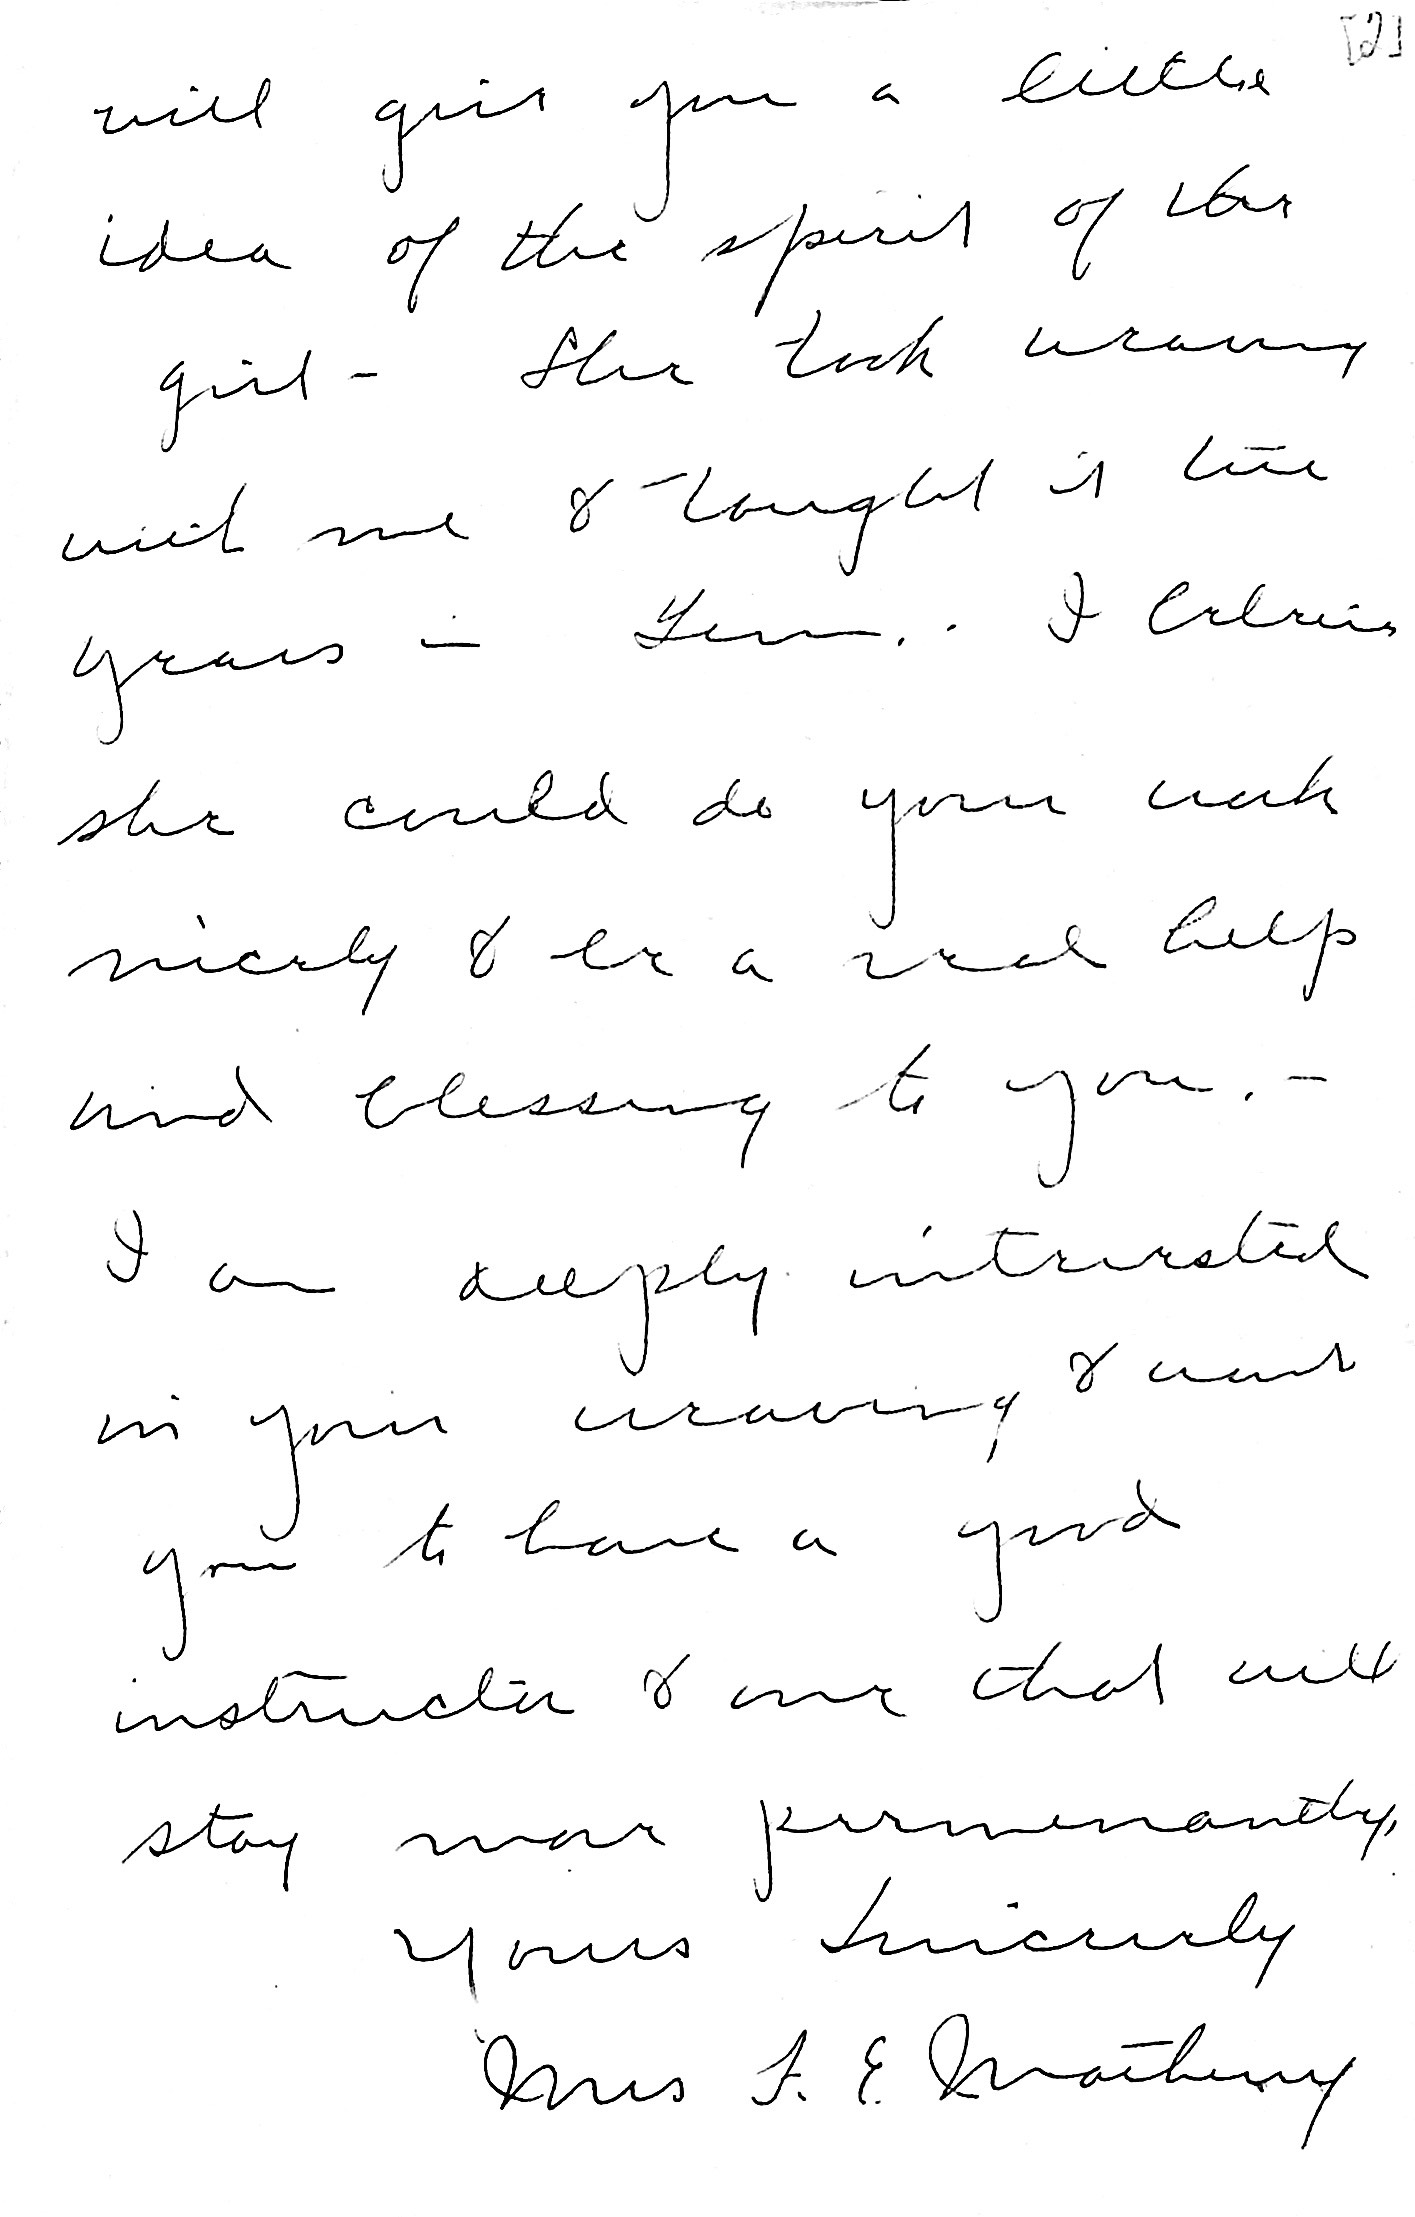 [2]
will give you a little
idea of the spirit of the
girl - She took weaving
with me & taught it two
years - I believe
she could do your work
nicely & be a real help
and blessing to you. -
I am deeply interested
in your weaving & want
you to have a good
instructor & one that will
stay more permenantly,
Yours Sincerely
Mrs F. E. Matheny